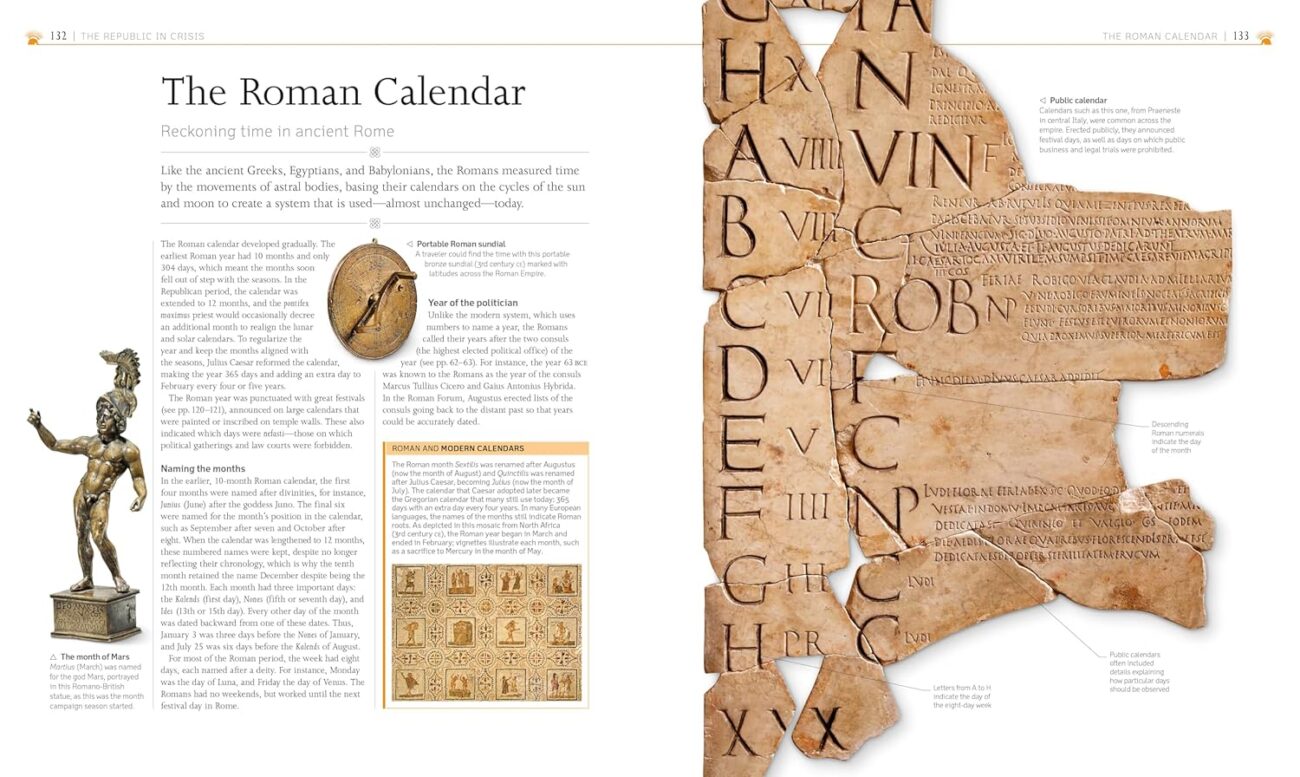 132 | THE REPUBLIC IN CRISIS
The Roman Calendar
Reckoning time in ancient Rome
Like the ancient Greeks, Egyptians, and Babylonians, the Romans measured time
by the movements of astral bodies, basing their calendars on the cycles of the sun
and moon to create a system that is used—almost unchanged—today.
The Roman calendar developed gradually. The
earliest Roman year had 10 months and only
304 days, which meant the months soon
fell out of step with the seasons. In the
Republican period, the calendar was
extended to 12 months, and the pontifex
maximus priest would occasionally decree
an additional month to realign the lunar
and solar calendars. To regularize the
year and keep the months aligned with
the seasons, Julius Caesar reformed the calendar,
making the year 365 days and adding an extra day to
February every four or five years.
The Roman year was punctuated with great festivals
(see pp. 120–121), announced on large calendars that
were painted or inscribed on temple walls. These also
indicated which days were nefasti—those on which
political gatherings and law courts were forbidden.
Naming the months
In the earlier, 10-month Roman calendar, the first
four months were named after divinities, for instance,
Junius (June) after the goddess Juno. The final six
were named for the month's position in the calendar,
such as September after seven and October after
eight. When the calendar was lengthened to 12 months,
these numbered names were kept, despite no longer
reflecting their chronology, which is why the tenth
month retained the name December despite being the
12th month. Each month had three important days:
the Kalends (first day), Nones (fifth or seventh day), and
Ides (13th or 15th day). Every other day of the month
was dated backward from one of these dates. Thus,
January 3 was three days before the Nones of January,
and July 25 was six days before the Kalends of August.
For most of the Roman period, the week had eight
days, each named after a deity. For instance, Monday
was the day of Luna, and Friday the day of Venus. The
Romans had no weekends, but worked until the next
festival day in Rome.
◁ Portable Roman sundial
A traveler could find the time with this portable
bronze sundial (3rd century CE) marked with
latitudes across the Roman Empire.
Year of the politician
Unlike the modern system, which uses
numbers to name a year, the Romans
called their years after the two consuls
(the highest elected political office) of the
year (see pp. 62–63). For instance, the year 63 BCE
was known to the Romans as the year of the consuls
Marcus Tullius Cicero and Gaius Antonius Hybrida.
In the Roman Forum, Augustus erected lists of the
consuls going back to the distant past so that years
could be accurately dated.
ROMAN AND MODERN CALENDARS
The Roman month Sextilis was renamed after Augustus
(now the month of August) and Quinctilis was renamed
after Julius Caesar, becoming Julius (now the month of
July). The calendar that Caesar adopted later became
the Gregorian calendar that many still use today: 365
days with an extra day every four years. In many European
languages, the names of the months still indicate Roman
roots. As depicted in this mosaic from North Africa
(3rd century CE), the Roman year began in March and
ended in February; vignettes illustrate each month, such
as a sacrifice to Mercury in the month of May.
△ The month of Mars
Martius (March) was named
for the god Mars, portrayed
in this Romano-British
statue, as this was the month
campaign season started.
THE ROMAN CALENDAR | 133
◁ Public calendar
Calendars such as this one, from Praeneste
in central Italy, were common across the
empire. Erected publicly, they announced
festival days, as well as days on which public
business and legal trials were prohibited.
H X N
A VIIII VIN F
B VIII C
C VII ROB NP
D VI F
E V C
F IIII NP
G III C LVDI
H PR C LVDI
XVX
Descending
Roman numerals
indicate the day
of the month
Public calendars
often included
details explaining
how particular days
should be observed
Letters from A to H
indicate the day of
the eight-day week